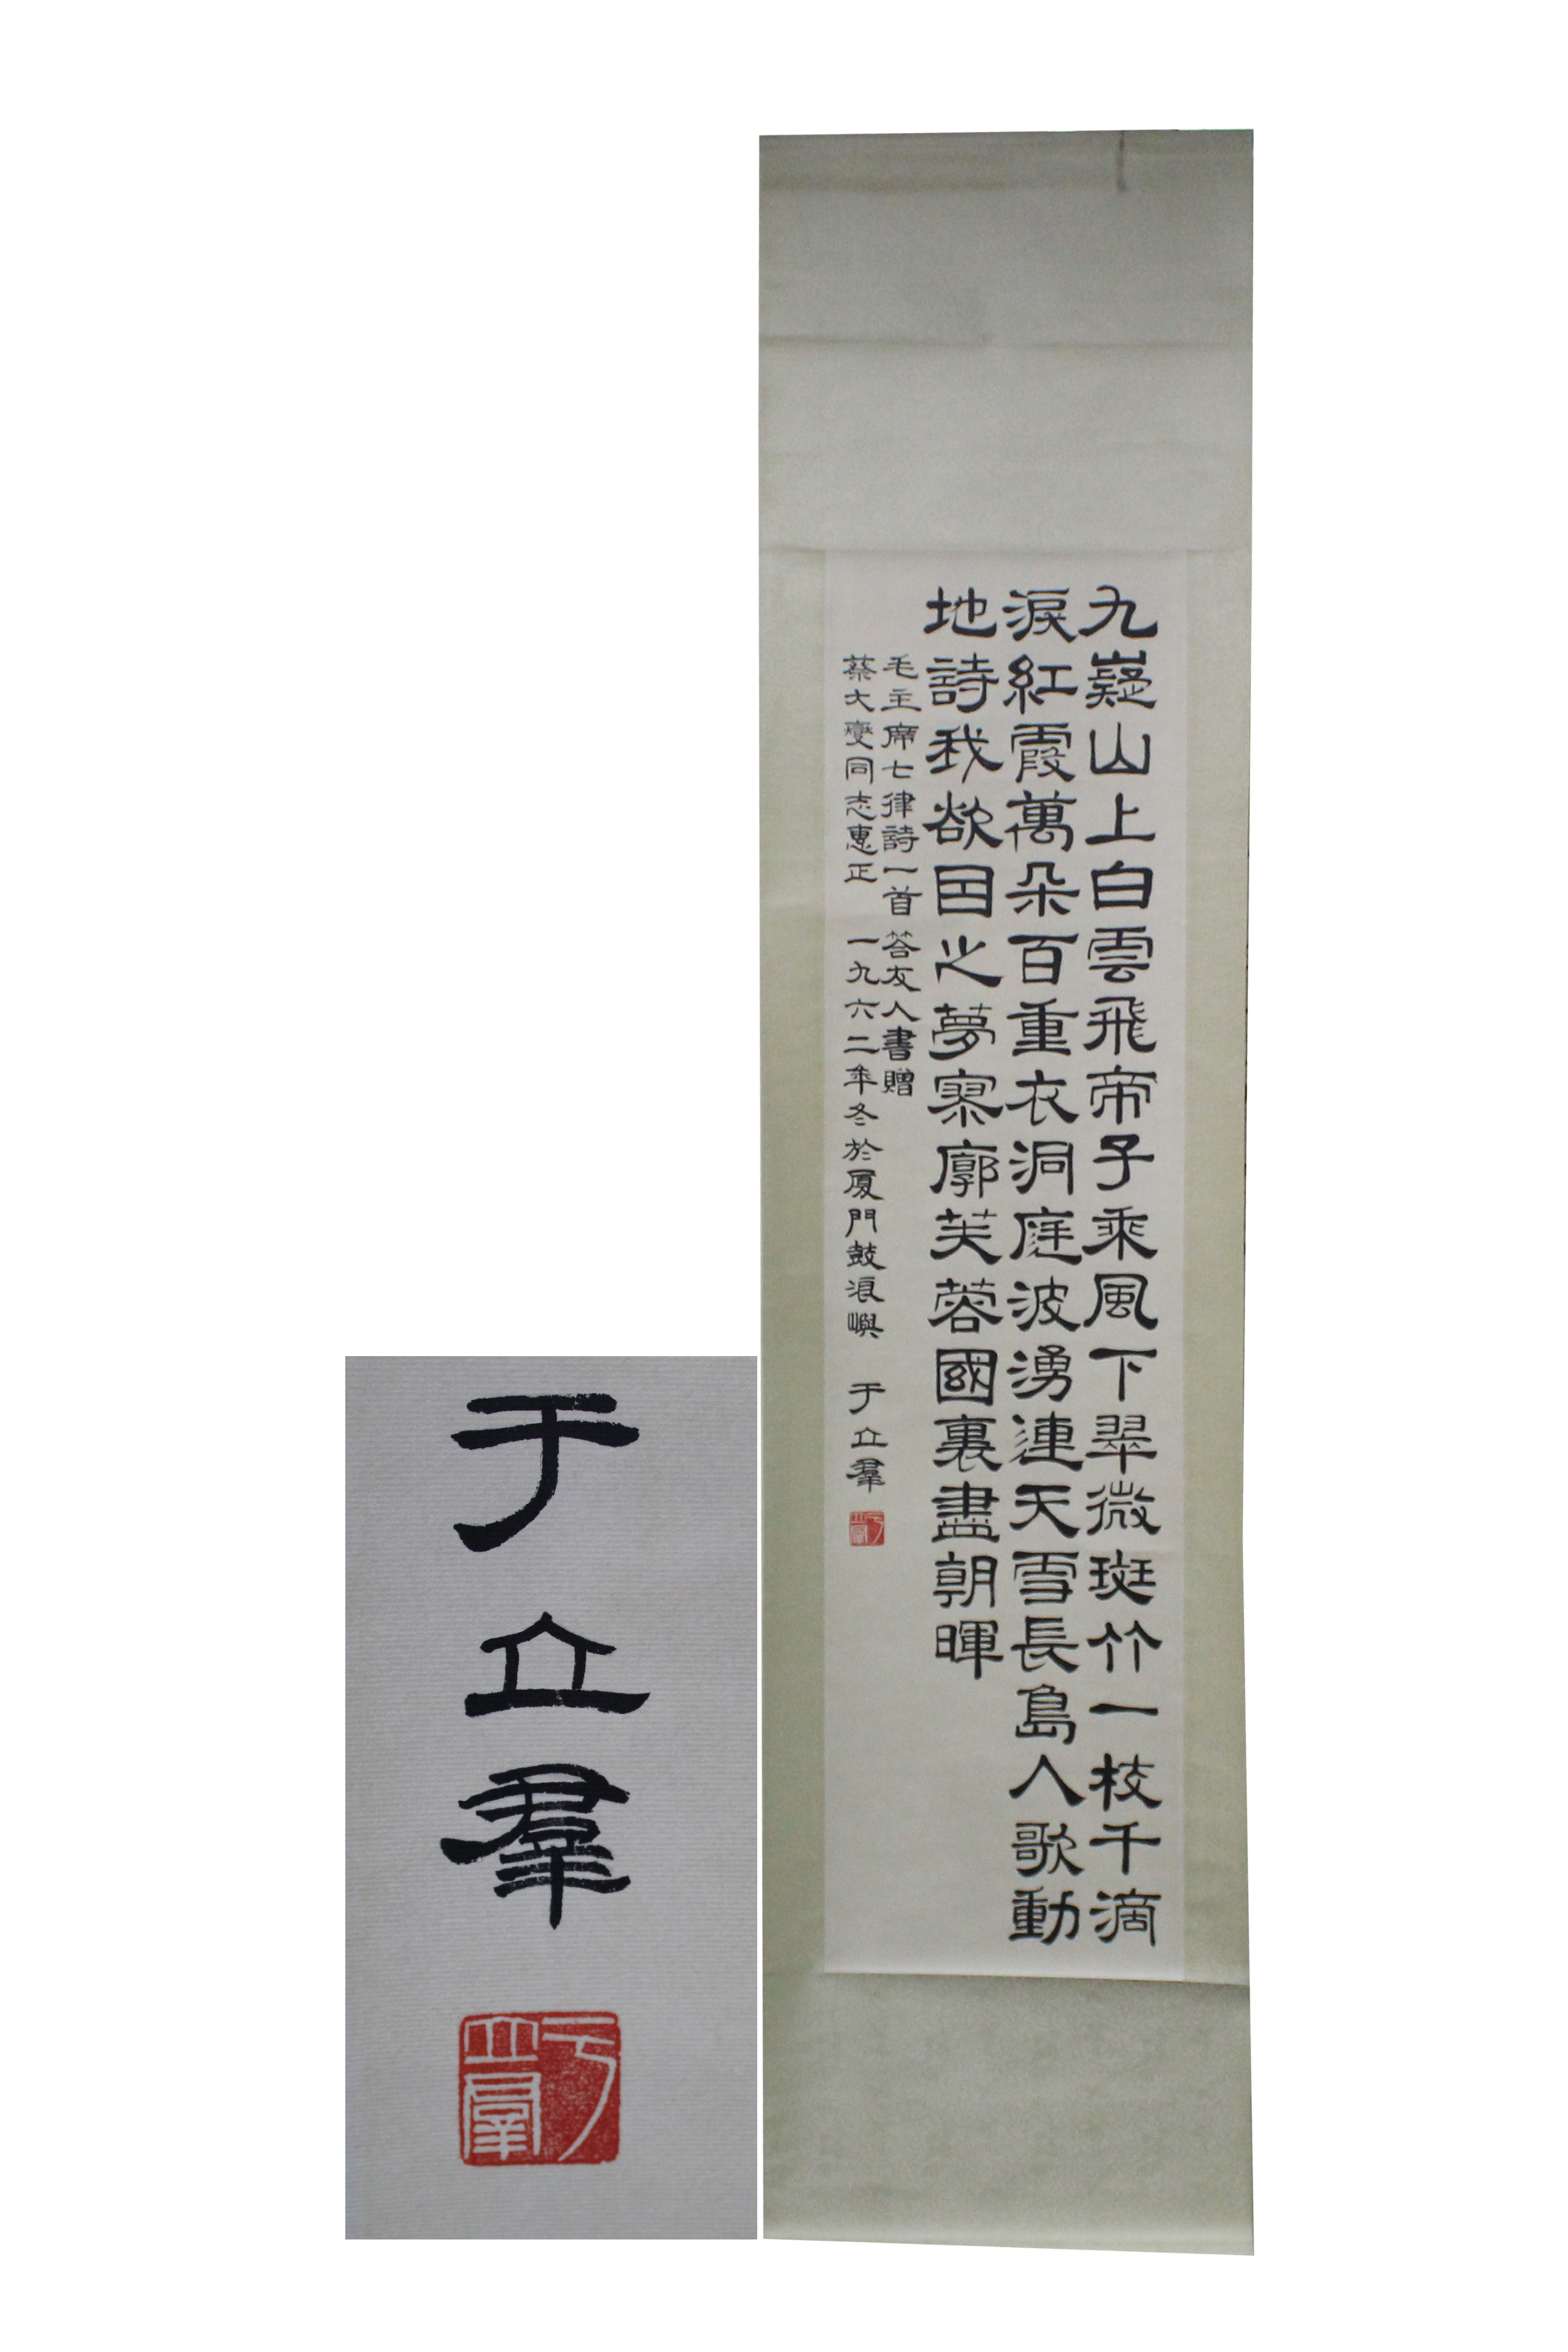 九嶷山上白雲飛帝子乘風下翠微斑竹一枝千滴
淚紅霞萬朵百重衣洞庭波湧連天雪長島人歌動
地詩我欲因之夢寥廓芙蓉國裏盡朝暉
毛主席七律詩一首答友人書贈
蔡大燮同志惠正 一九六二年冬於厦門鼓浪嶼 于立羣
于立羣
于立羣
于立羣